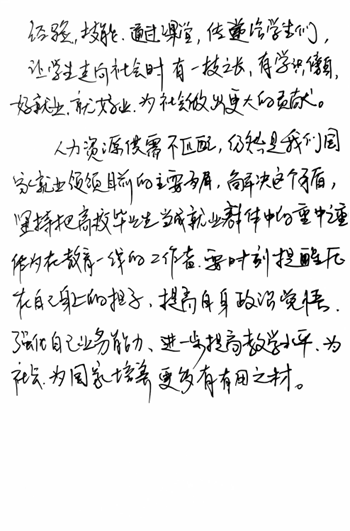 经验,技能.通过课堂,传递给学生们,
让学生走向社会时有一技之长,有学识傍身,
好就业.就好业.为社会做出更大的贡献。
人力资源供需不匹配,仍然是我们国
家就业领域目前的主要矛盾,向解决这个矛盾,
坚持把高校毕业生当成就业群体中的重中之重
作为在教育一线的工作者.要时刻提醒压
在自己身上的担子,提高自身政治觉悟.
强化自己业务能力、进一步提高教学水平.为
社会.为国家培养更多有有用之材。